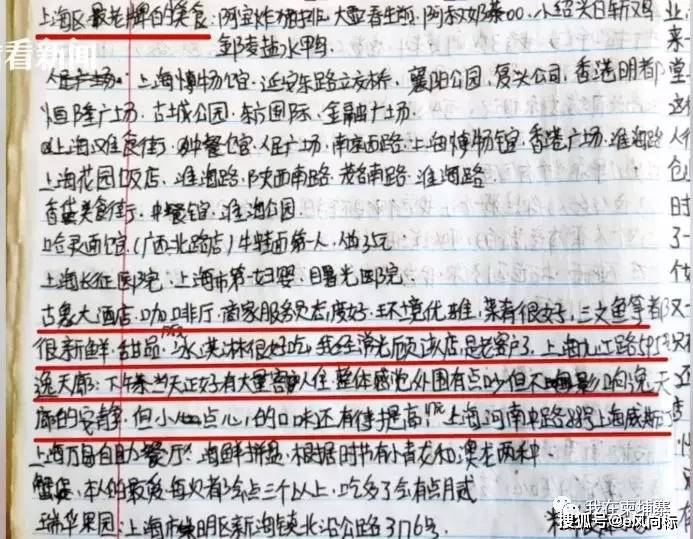 看看新闻
上海区最老牌的美食:阿宝炸猪排、大壶春生煎、阿衩奶茶00、小绍兴白斩鸡
邵万盐水鸭
人民广场、上海博物馆、延安东路立交桥、襄阳公园、复兴公司,香港明都
恒隆广场、古城公园、东方国际、金融广场
上海美食街、中餐馆、人民广场、南京西路、上海博物馆、香港广场、淮海路
上海花园饭店、淮海路、陕西南路、茂名南路、淮海路
美食街、中餐馆、淮海公园
哈灵面馆、(广西北路店)牛蛙面第一人、做25元
上海长征医院、上海市第一妇婴、曙光医院
古象大酒店、咖啡厅、商家服务员态度好、环境优雅、菜肴很好、三文鱼等都
很新鲜、甜品、冰淇淋很好吃,我经常光顾该店,是老客户了、上海九江路595号
逸天廊:下午茶当天正好有大量客人住、整体感觉外围有点吵但不影响逸天
廊的安静、但小点心的口味还有待提高,上海河南中路 上海威斯
上海万易自助餐厅:海鲜拼盘、根据时节有小青龙和澳龙两种
蟹店、本人的最爱每次都会点三个以上、吃多了会有点月贰
瑞华果园:上海市崇明区新海镇北沿公路3176号
我在柬埔寨
搜狐号@风向标